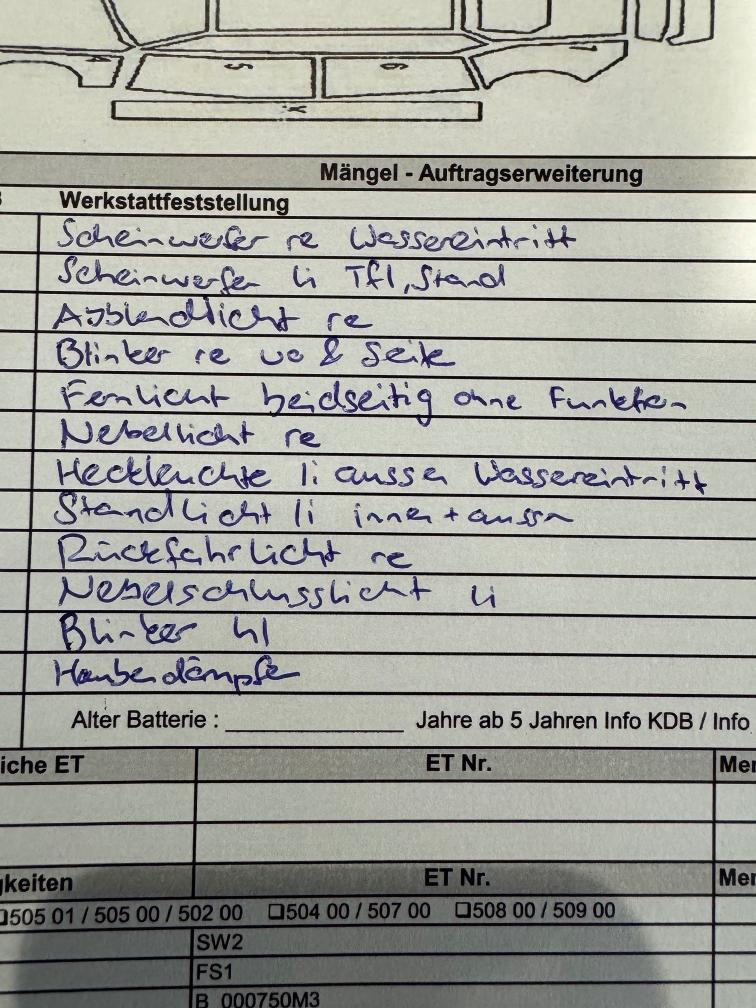 5
6
Mängel - Auftragserweiterung
Werkstattfeststellung
Scheinwerfer re Wassereintritt
Scheinwerfer li Tfl, Stand
Abblendlicht re
Blinker re vo & Seite
Fernlicht beidseitig ohne Funktion
Nebellicht re
Heckleuchte li aussen Wassereintritt
Standlicht li innen + aussen
Rückfahrlicht re
Nebelschlusslicht li
Blinker hl
Haubendämpfer
Alter Batterie : ____________ Jahre ab 5 Jahren Info KDB / Info
iche ET ET Nr. Mer
gkeiten ET Nr. Mer
❑505 01 / 505 00 / 502 00 ❑504 00 / 507 00 ❑508 00 / 509 00
SW2
FS1
B 000750M3